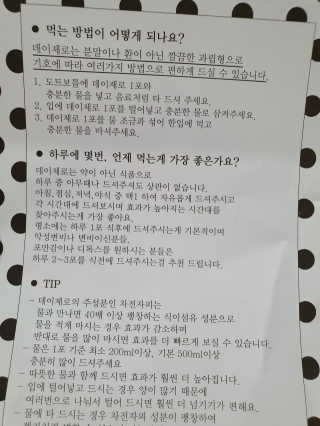 ● 먹는 방법이 어떻게 되나요?
데이제로는 분말이나 환이 아닌 깔끔한 과립형으로
기호에 따라 여러가지 방법으로 편하게 드실 수 있습니다.
1. 도트보틀에 데이제로 1포와
충분한 물을 넣고 음료처럼 타 드셔 주세요.
2. 입에 데이제로 1포를 털어넣고 충분한 물로 삼켜주세요.
3. 데이제로 1포를 물 조금과 섞어 한입에 먹고
충분한 물을 마셔주세요.
● 하루에 몇번, 언제 먹는게 가장 좋은가요?
데이제로는 약이 아닌 식품으로
하루 중 아무때나 드셔주셔도 상관이 없습니다.
아침,점심,저녁,야식 중 택1 하여 자유롭게 드셔주시고
각 시간대에 드셔보시며 효과가 높아지는 시간대를
찾아주시는게 가장 좋아요.
평소에는 하루 1포 식후에 드셔주시는게 기본적이며
악성변비나 변비이신분들,
포만감이나 디톡스를 원하시는 분들은
하루 2~3포를 식전에 드셔주시는걸 추천 드립니다.
● TIP
- 데이제로의 주성분인 차전자피는
물과 만나면 40배 이상 팽창하는 식이섬유 성분으로
물을 적게 마시는 경우 효과가 감소하며
반대로 물을 많이 마시면 효과를 더 빠르게 보실 수 있습니다.
- 물은 1포 기준 최소 200ml이상, 기본 500ml이상
충분히 많이 드셔주세요
- 따뜻한 물과 함께 드시면 효과가 훨씬 더 높아집니다.
- 입에 털어넣고 드시는 경우 양이 많기 때문에
여러번으로 나눠서 털어 드시면 훨씬 더 넘기기가 편해요.
- 물에 타 드시는 경우 차전자피 성분이 팽창하여